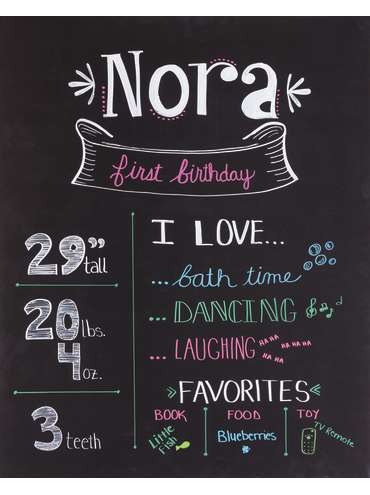 Nora
first birthday
29" tall
20 lbs.
4 oz.
3 teeth
I LOVE...
...bath time
...DANCING
...LAUGHING HA HA HA HA HA HA HA
FAVORITES
BOOK FOOD TOY
Little Fish
Blueberries
TV Remote